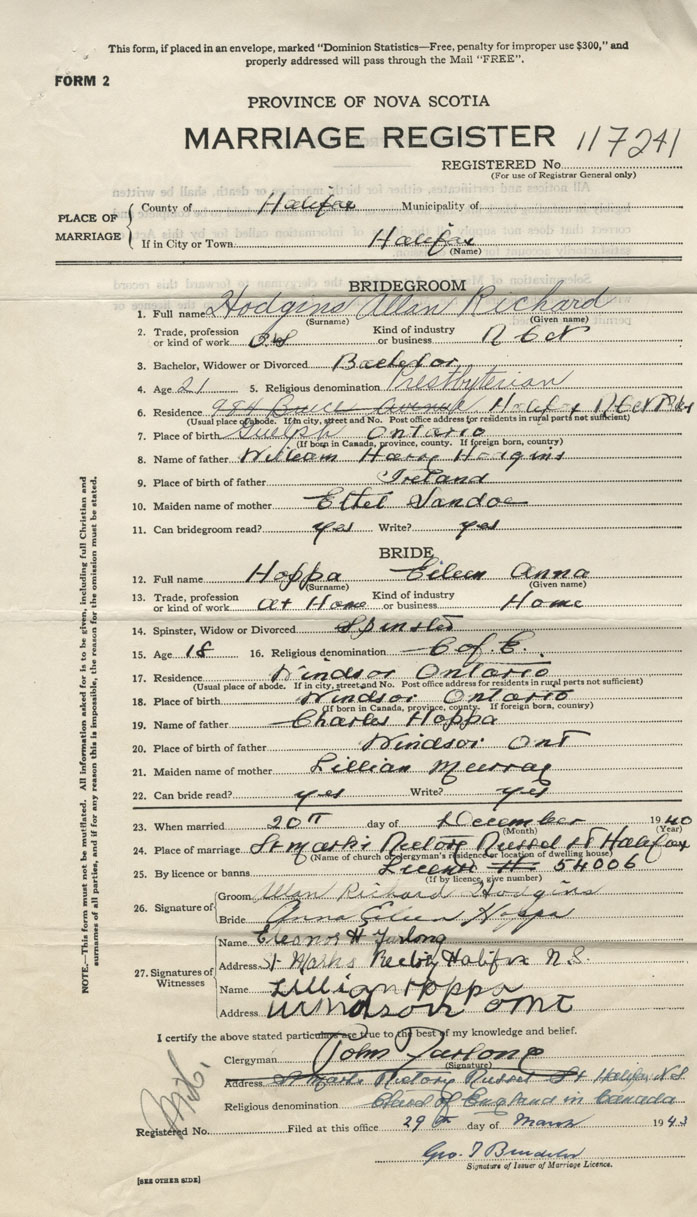 This form, if placed in an envelope, marked "Dominion Statistics—Free, penalty for improper use $300," and
properly addressed will pass through the Mail "FREE".
FORM 2
PROVINCE OF NOVA SCOTIA
MARRIAGE REGISTER 117241
REGISTERED No.
(For use of Registrar General only)
PLACE OF MARRIAGE
County of Halifax Municipality of
If in City or Town Halifax
(Name)
BRIDEGROOM
1. Full name Hodgins Allan Richard
(Surname) (Given name)
2. Trade, profession or kind of work Kind of industry or business
3. Bachelor, Widower or Divorced Bachelor
4. Age 21 5. Religious denomination Presbyterian
6. Residence 984 Bruce Avenue Halifax
(Usual place of abode. If in city, street and No. Post office address for residents in rural parts not sufficient)
7. Place of birth Guelph Ontario
(If born in Canada, province, county. If foreign born, country)
8. Name of father William Harry Hodgins
9. Place of birth of father Ireland
10. Maiden name of mother Ethel
11. Can bridegroom read? yes Write? yes
BRIDE
12. Full name Hoppa Eileen Anna
(Surname) (Given name)
13. Trade, profession or kind of work At Home Kind of industry or business Home
14. Spinster, Widow or Divorced Spinster
15. Age 18 16. Religious denomination C of E.
17. Residence Windsor Ontario
(Usual place of abode. If in city, street and No. Post office address for residents in rural parts not sufficient)
18. Place of birth Windsor Ontario
(If born in Canada, province, county. If foreign born, country)
19. Name of father Charles Hoppa
20. Place of birth of father Windsor Ont
21. Maiden name of mother Lillian Murray
22. Can bride read? yes Write? yes
23. When married 20th day of December 1940
(Month) (Year)
24. Place of marriage St Mark's Rectory Russel St Halifax
(Name of church or clergyman's residence or location of dwelling house)
25. By licence or banns License # 54006
(If by licence, give number)
26. Signature of
Groom Allan Richard Hodgins
Bride Anna Eileen Hoppa
27. Signatures of Witnesses
Name Eleanor H Furlong
Address St Mark's Rectory Halifax N.S.
Name Lillian Hoppa
Address Windsor Ont
I certify the above stated particulars are true to the best of my knowledge and belief.
Clergyman John Furlong
(Signature)
Address St Marks Rectory Russel St Halifax N.S.
Religious denomination Church of England in Canada
Registered No. Filed at this office 29th day of March 1943
Geo.
Signature of Issuer of Marriage Licence.
[SEE OTHER SIDE]
NOTE.—This form must not be mutilated. All information asked for is to be given, including full Christian and
surnames of all parties, and if for any reason this is impossible, the reason for the omission must be stated.